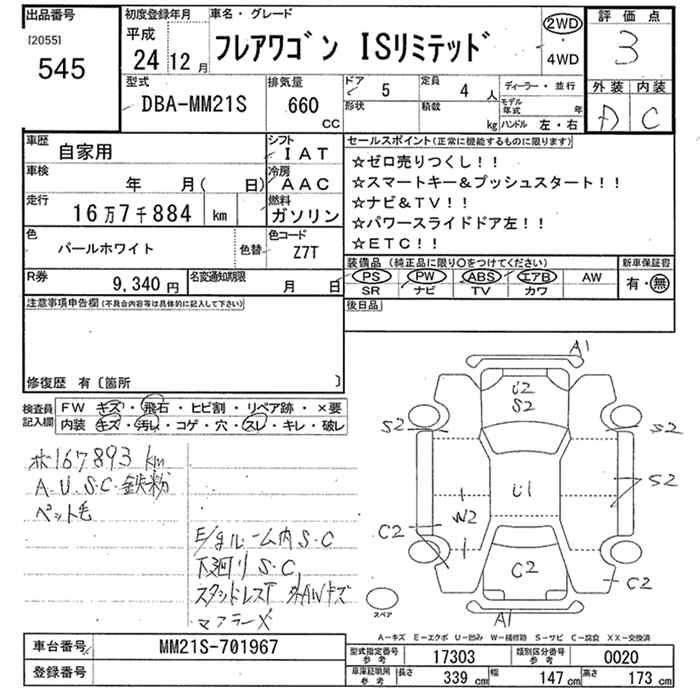 出品番号
[2055]
545
初度登録年月
平成
24年12月
車名・グレード
フレアワゴン ISリミテッド
2WD
・
4WD
評価点
3
外装 内装
A C
型式
DBA-MM21S
排気量
660
CC
ドア 5
形状
定員 4 人
積載 kg
ディーラー・並行
モデル年式 年
ハンドル 左・右
車歴
自家用
シフト
IAT
車検
年 月( 日)
冷房
AAC
走行
16万7千884 km
燃料
ガソリン
色
パールホワイト
色替
色コード
Z7T
R券
9,340円
名変通知期限
月 日
セールスポイント(正常に機能するものに限ります)
☆ゼロ売りつくし!!
☆スマートキー&プッシュスタート!!
☆ナビ&TV!!
☆パワースライドドア左!!
☆ETC!!
装備品(純正品に限り○をつけてください)
PS PW ABS エアB AW
SR ナビ TV カワ
新車保証書
有・無
後日品
注意事項申告欄(不具合内容等は具体的に記入して下さい)
修復歴 有〔箇所 〕
検査員記入欄
FW キズ・飛石・ヒビ割・リペア跡・×要
内装 キズ・汚れ・コゲ・穴・スレ・キレ・破レ
ホ167893km
A.U.S.C 鉄粉
ペット毛
E/gルーム内S.C
下廻りS.C
スタッドレスT 外AWキズ
マフラーX
A1
U2
S2
S2
S2
U1
S2
W2
C2
C2
C2
A1
スペア
A-キズ E-エクボ U-凹み W-補修跡 S-サビ C-腐食 XX-交換済
車台番号
MM21S-701967
登録番号
型式指定番号
参考
17303
類別区分番号
参考
0020
車庫証明用
参考
長さ 339cm 幅 147cm 高さ 173cm